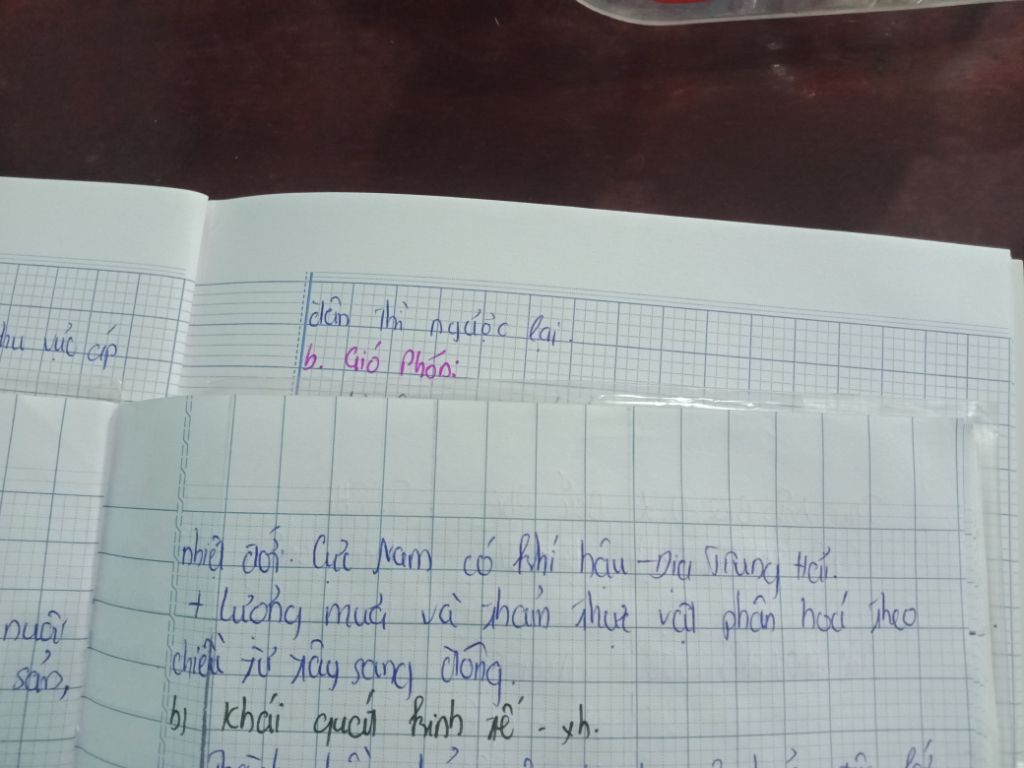 dần thì ngược lại.
b. Gió Phơn:
khu vực áp
nhiệt đới. Cực Nam có khí hậu Địa Trung Hải.
+ Lượng mưa và thảm thực vật phân hoá theo
chiều từ tây sang đông.
nuôi
sản,
b) Khái quát kinh tế - xh.